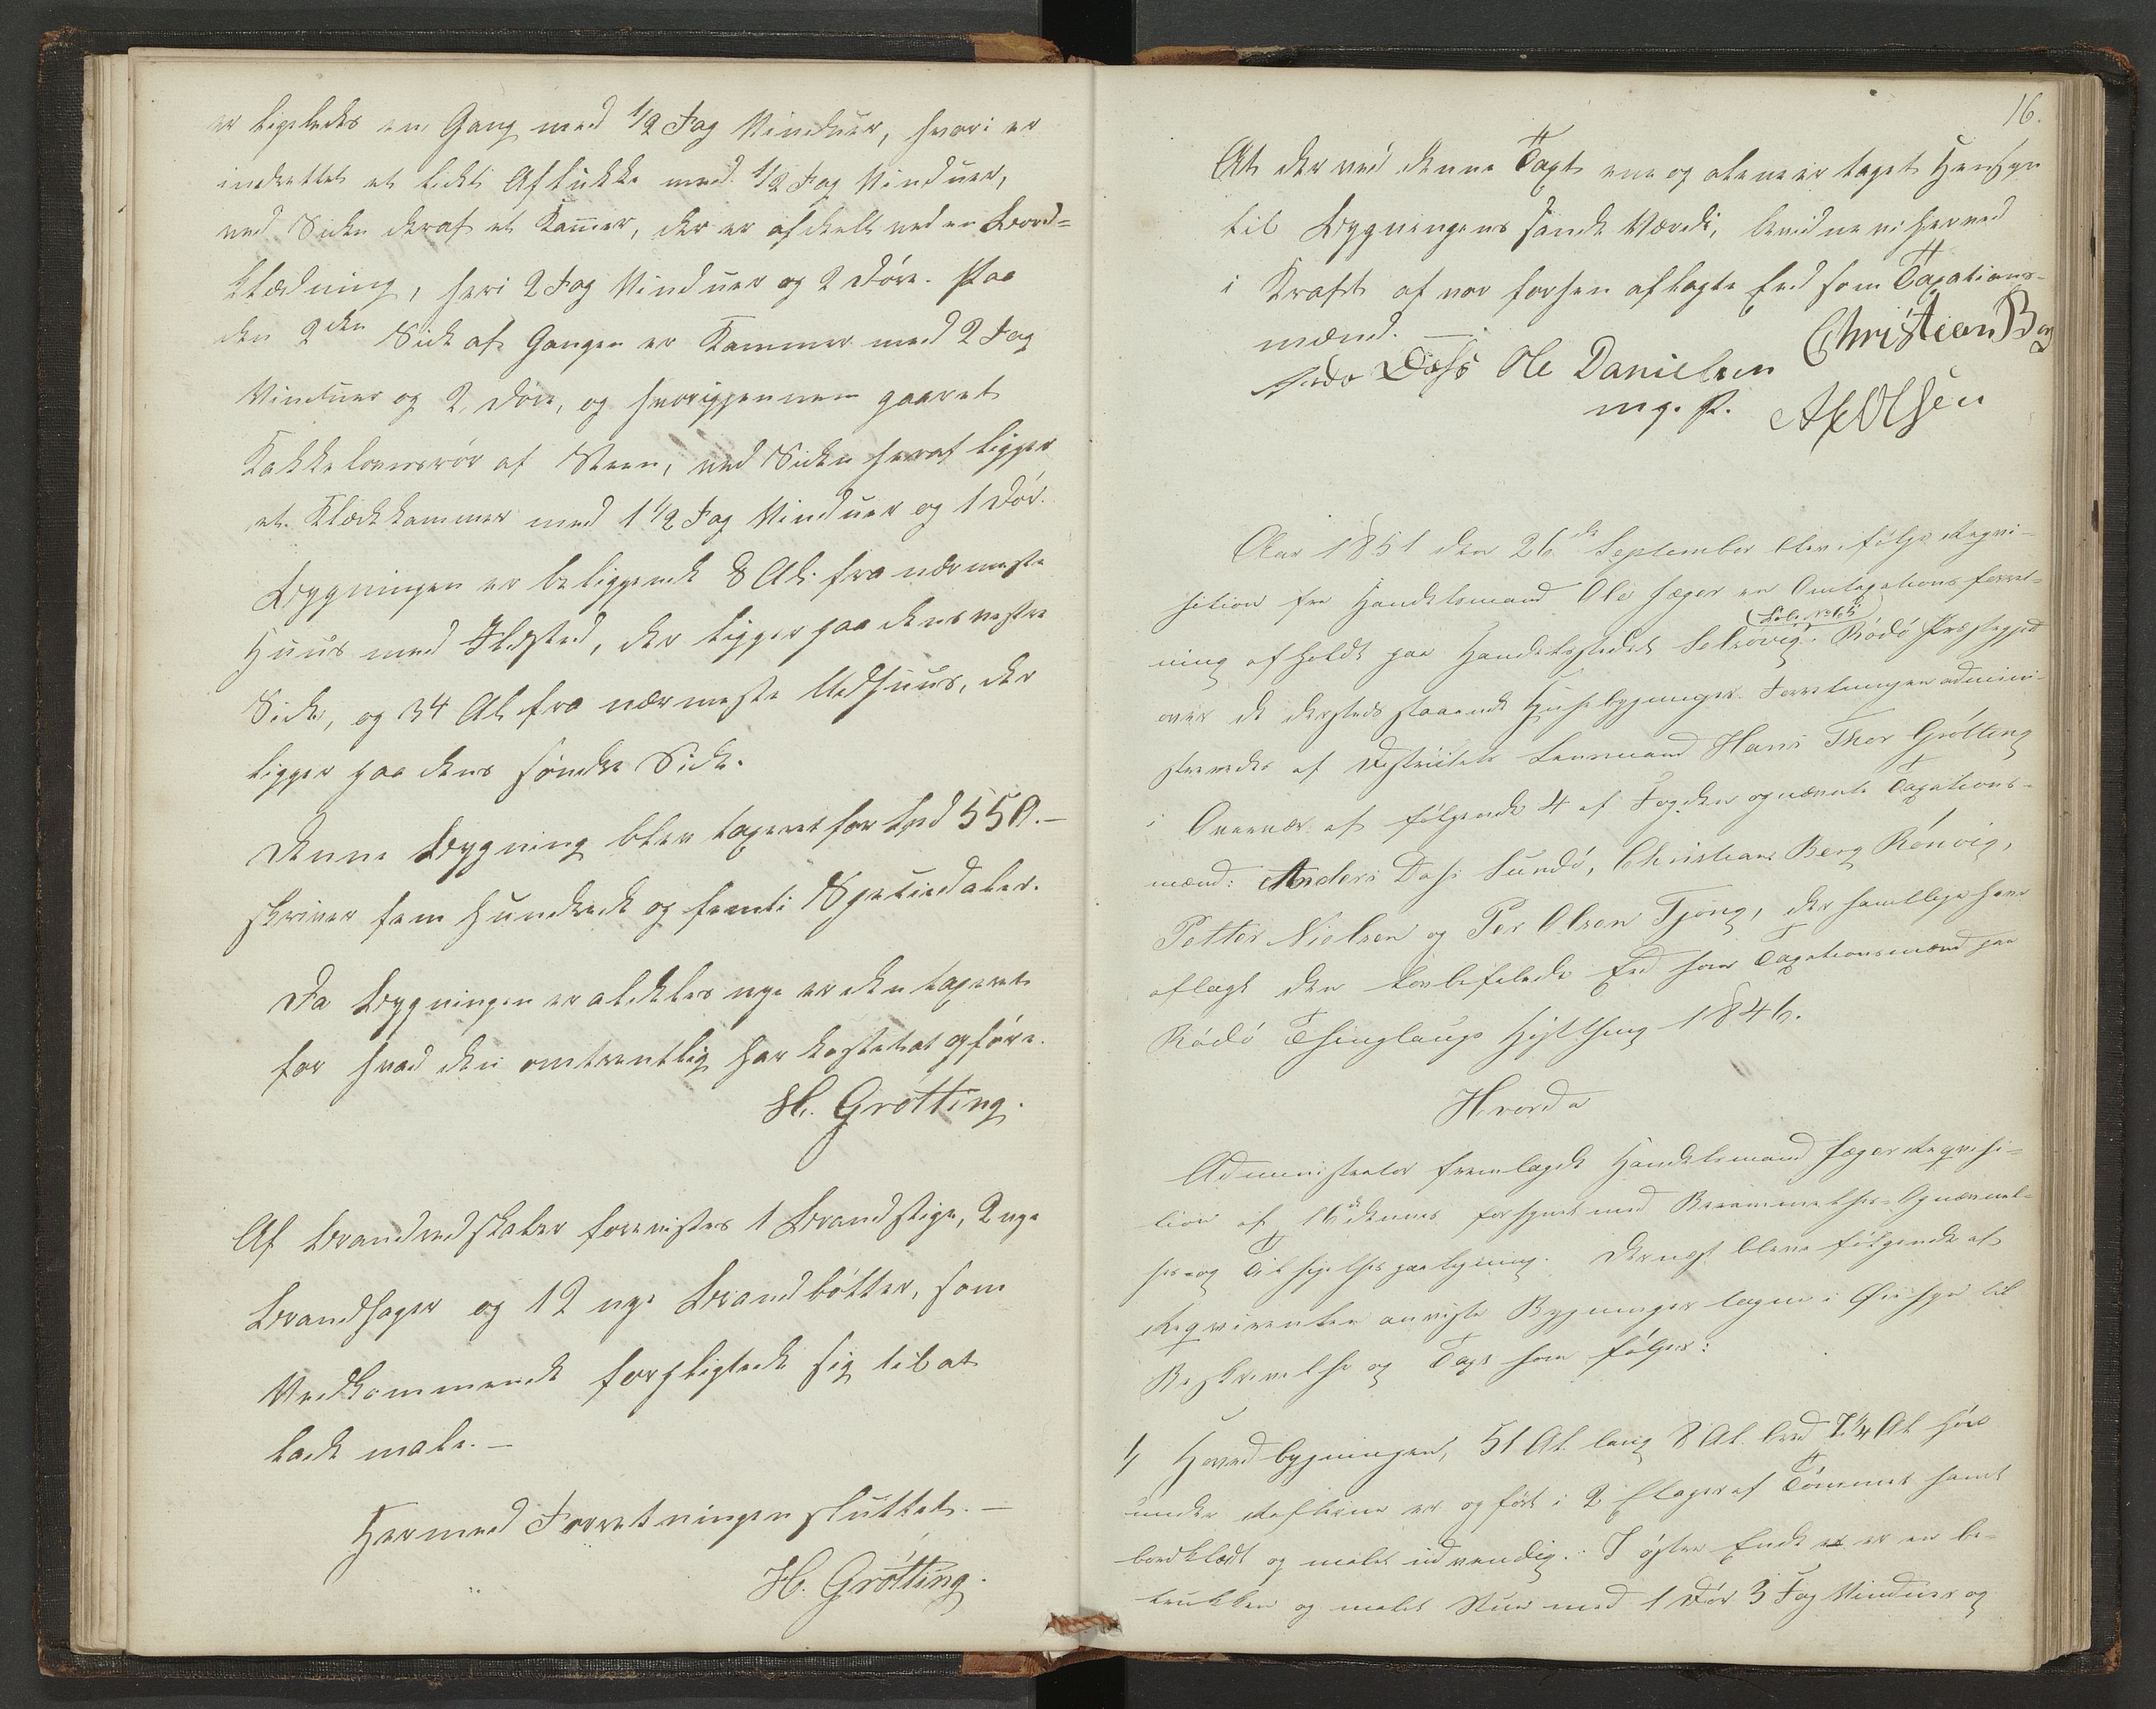 er ligeledes en Gang med 1/2 Fag Vinduer, hvori er
indrettet et lidet Aflukke med 1/2 Fag Vinduer,
ved Siden deraf et Kammer, der er afdeelt ved en Bord=
klædning, heri 2 Fag Vinduer og 2 Döre. Paa
den 2den Side af Gangen er Kammer med 2 Fag
Vinduer og 2 Döre, og hvorigjennem gaaer et
Kakkelovnsrör af Steen, ved Siden heraf ligger
et Klædekammer med 1 1/2 Fag Vinduer og 1 Dör.
Bygningen er beliggende 8 Al. fra nærmeste
Huus med Ildsted, der ligger paa dens vestre
Side, og 34 Al. fra nærmeste Udhuus, der
ligger paa dens söndre Side.
Denne Bygning blev taxeret for Spd 550.—
skriver fem Hundrede og femti Speciedaler.
Da Bygningen er aldeles nye er den taxeret
for hvad den omtrentlig har kostet at opföre.
H. Grötting.
Af Brandredskaber forevistes 1 Brandstige, 2 nye
Brandhager og 12 nye Brandbötter, som
Vedkommende forpligtede sig til at
lade male.—
Hermed Forretningen sluttet.—
H. Grötting.
16.
At der ved denne Taxt ene og alene er taget Hensyn
til Bygningens sande Værdi, bevidne vi herved
i Kraft af vor forhen aflagte Eed som Taxations-
mænd.— Christian Berg
Dass Ole Danielsen
m. p. A Olsen
Aar 1851 den 26de September blev ifölge Reqvi-
sition fra Handelsmand Ole Jæger en Omtaxationsforret-
ning afholdt paa Handelsstedet Selsövig i Rödö Præstegjeld
over de dersteds staaende Husebygninger. Forretningen admini-
streredes af Districtets Lensmand Hans Thor Grötting
i Overvær af fölgende 4 af Fogden opnævnte Taxations-
mænd: Anders Dass Sundö, Christian Berg Rönvig,
Petter Nielsen og Per Olsen Tjong, der samtlige have
aflagt den lovbefalede Eed som Taxationsmænd paa
Rödö Thinglaugs Hösthing 1846.
Hvorda
Administrator fremlagde Handelsmand Jægers Reqvisi-
tion af 16de dennes forsynet med Berammelses- Opnævnel-
ses- og Tilsigelses paategning. Dernæst bleve fölgende af
Reqvirenten anviste Bygninger tagne i Öiesyn til
Beskrivelse og Taxt som fölger:
1, Hovedbygningen, 51 Al. lang 8 Al. bred 7 1/4 Al. höi
under Rafterne er opfört i 2 Etager af Tömmer samt
bordklædt og malet udvendig. I östre Ende er en be-
trukken og malet Stue med 1 Dör 3 Fag Vinduer og